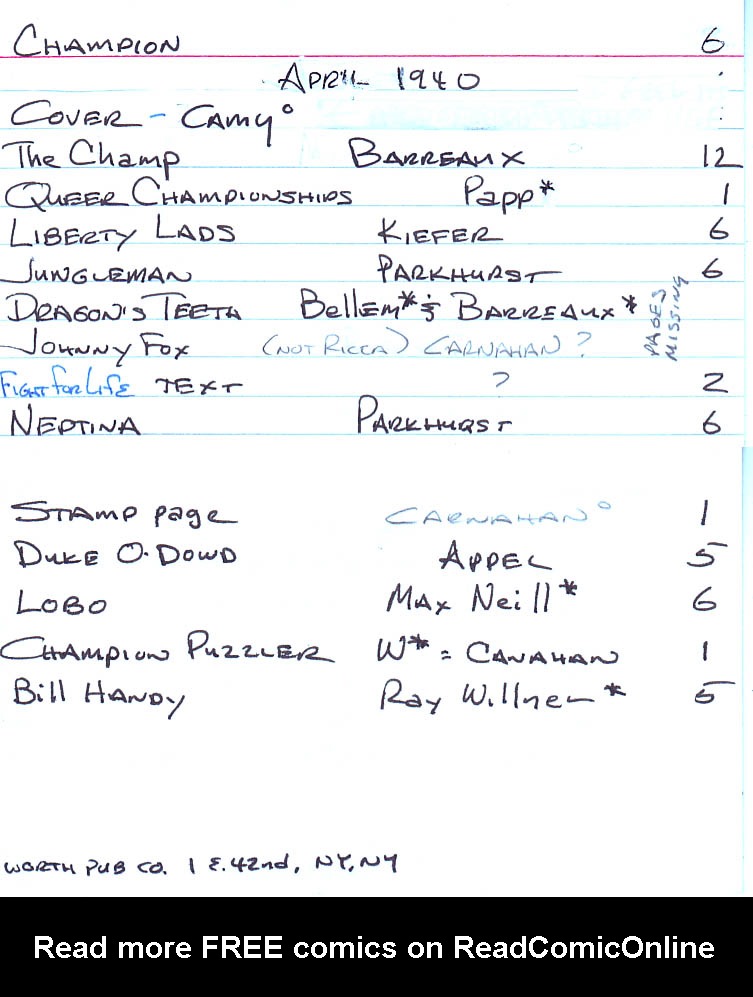 CHAMPION 6
APRIL 1940
COVER - CAMY°
The Champ BARREAUX 12
QUEER CHAMPIONSHIPS Papp* 1
LIBERTY LADS KIEFER 6
JUNGLEMAN PARKHURST 6
DRAGON'S TEETH Bellem* & BARREAUX* PAGES MISSING
JOHNNY FOX (NOT RICCA) CARNAHAN ?
FIGHT for LIFE TEXT ? 2
NEPTINA PARKHURST 6
STAMP page CARNAHAN° 1
DUKE O'DOWD APPEL 5
LOBO MAX Neill* 6
CHAMPION PUZZLER W* = CANAHAN 1
Bill HANDY Ray Willner* 5
WORTH PUB CO. 1 E. 42nd, NY, NY
Read more FREE comics on ReadComicOnline